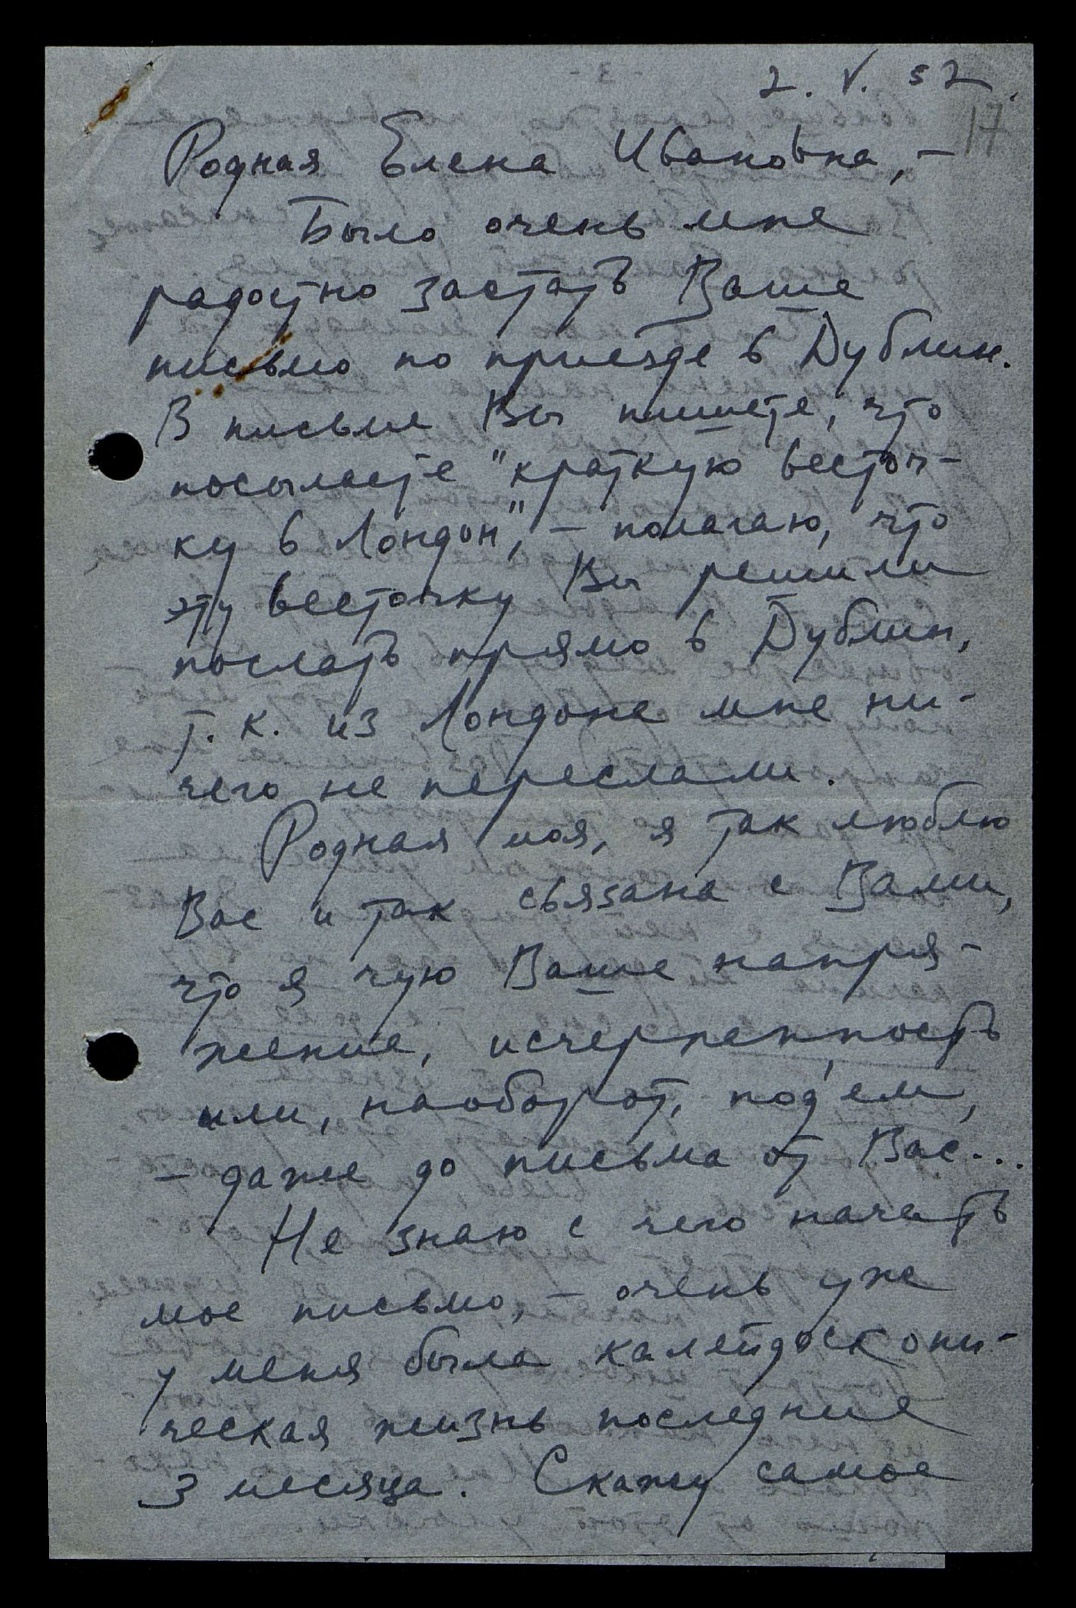 2. V. 52.
17
Родная Елена Ивановна, –
Было очень мне
радостно застать Ваше
письмо по приезде в Дублин.
В письме Вы пишете, что
посылаете "краткую весточ-
ку в Лондон", – полагаю, что
эту весточку Вы решили
послать прямо в Дублин,
т. к. из Лондона мне ни-
чего не переслали.
Родная моя, я так люблю
Вас и так связана с Вами,
что я чую Ваше напря-
жение, исчерпанность
или, наоборот, под'ем,
– даже до письма от Вас...
Не знаю с чего начать
мое письмо, – очень уже
у меня была калейдоскопи-
ческая жизнь последние
3 месяца. Скажу самое